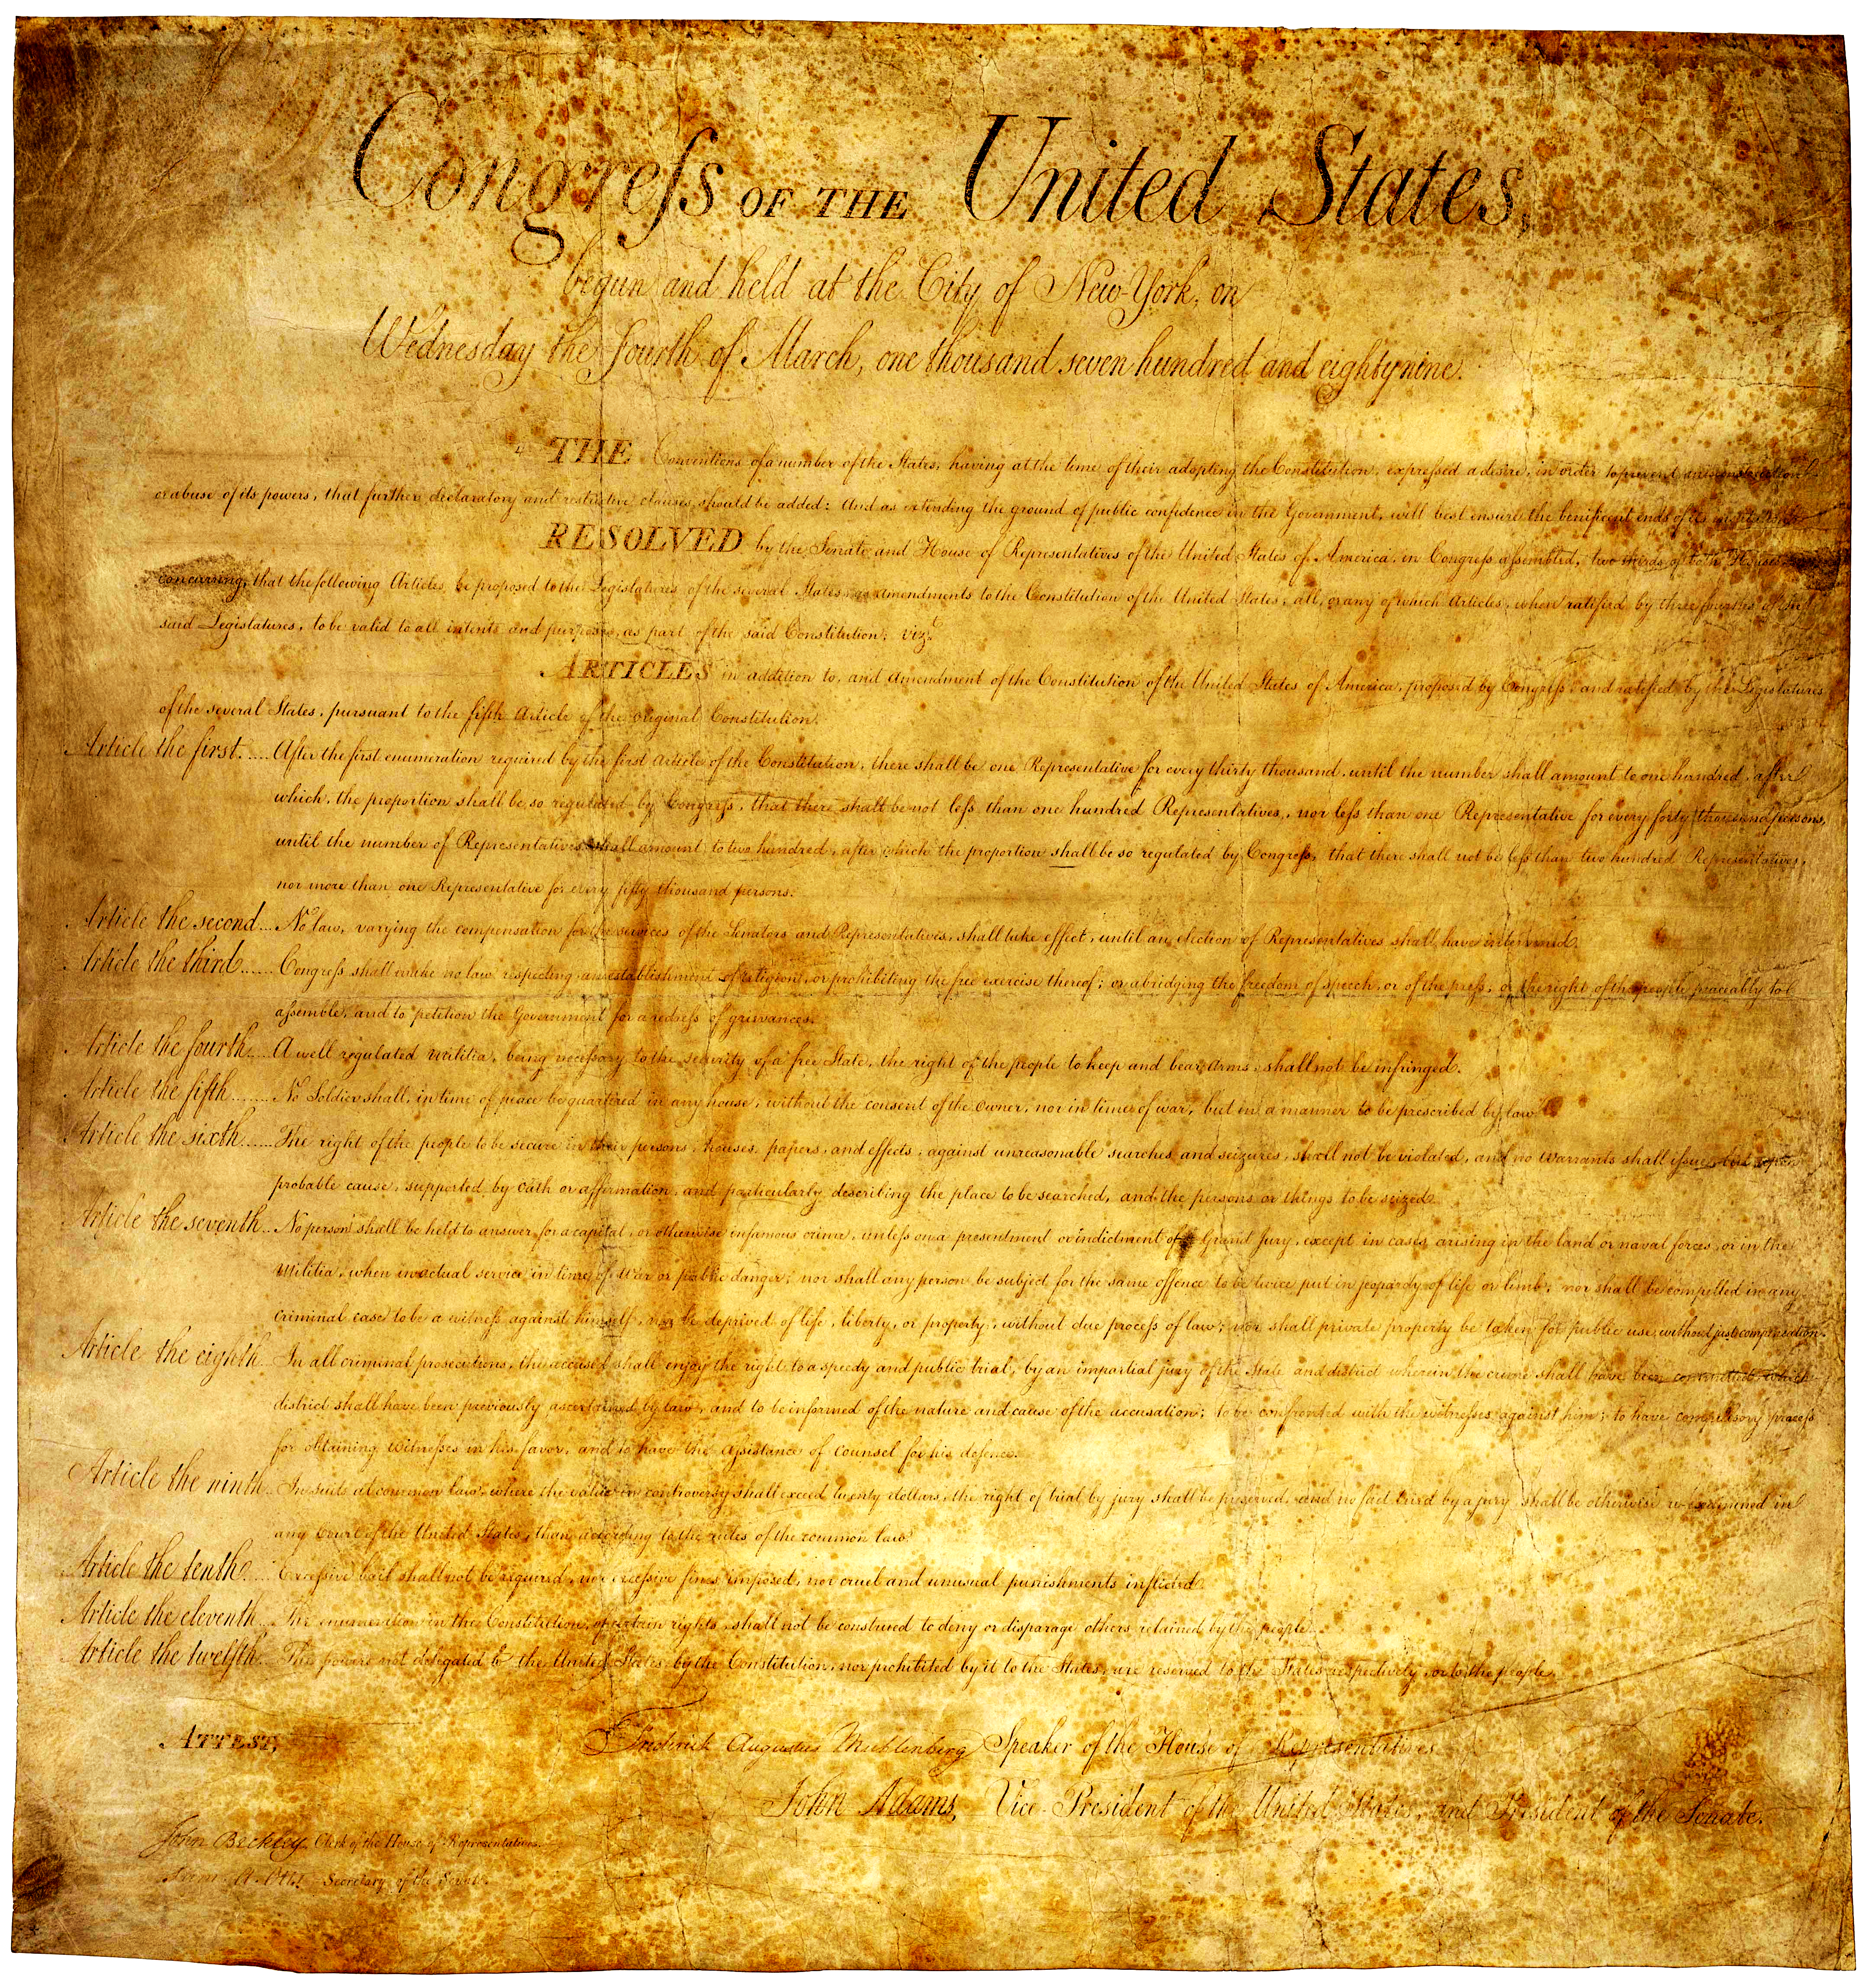 Congreſs OF THE United States,
begun and held at the City of New-York, on
Wednesday the fourth of March, one thousand seven hundred and eighty nine.
THE Conventions of a number of the States, having at the time of their adopting the Constitution, expreſsed a desire, in order to prevent misconstruction
or abuse of its powers, that further declaratory and restrictive clauses should be added: And as extending the ground of public confidence in the Government, will best ensure the benificent ends of its institution
RESOLVED by the Senate and House of Representatives of the United States of America, in Congreſs aſsembled, two thirds of both Houses
concurring, that the following Articles be proposed to the Legislatures of the several States, as amendments to the Constitution of the United States, all, or any of which Articles, when ratified by three fourths of the
said Legislatures, to be valid to all intents and purposes, as part of the said Constitution; vizt.
ARTICLES in addition to, and Amendment of the Constitution of the United States of America, proposed by Congreſs, and ratified by the Legislatures
of the several States, pursuant to the fifth Article of the original Constitution.
Article the first..... After the first enumeration required by the first Article of the Constitution, there shall be one Representative for every thirty thousand, until the number shall amount to one hundred, after
which, the proportion shall be so regulated by Congreſs, that there shall be not leſs than one hundred Representatives, nor leſs than one Representative for every forty thousand persons,
until the number of Representatives shall amount to two hundred, after which the proportion shall be so regulated by Congreſs, that there shall not be leſs than two hundred Representatives,
nor more than one Representative for every fifty thousand persons.
Article the second... No law, varying the compensation for the services of the Senators and Representatives, shall take effect, until an election of Representatives shall have intervened.
Article the third...... Congreſs shall make no law respecting an establishment of religion, or prohibiting the free exercise thereof; or abridging the freedom of speech, or of the preſs; or the right of the people peaceably to
aſsemble, and to petition the Government for a redreſs of grievances.
Article the fourth.... A well regulated Militia, being neceſsary to the security of a free State, the right of the people to keep and bear Arms, shall not be infringed.
Article the fifth........ No Soldier shall, in time of peace be quartered in any house, without the consent of the Owner, nor in time of war, but in a manner to be prescribed by law.
Article the sixth...... The right of the people to be secure in their persons, houses, papers, and effects, against unreasonable searches and seizures, shall not be violated, and no Warrants shall iſsue, but upon
probable cause, supported by Oath or affirmation, and particularly describing the place to be searched, and the persons or things to be seized.
Article the seventh.. No person shall be held to answer for a capital, or otherwise infamous crime, unleſs on a presentment or indictment of a Grand Jury, except in cases arising in the land or naval forces, or in the
Militia, when in actual service in time of War or public danger; nor shall any person be subject for the same offence to be twice put in jeopardy of life or limb; nor shall be compelled in any
criminal case to be a witneſs against himself, nor be deprived of life, liberty, or property, without due proceſs of law; nor shall private property be taken for public use without just compensation.
Article the eighth.. In all criminal prosecutions, the accused shall enjoy the right to a speedy and public trial, by an impartial jury of the State and district wherein the crime shall have been committed, which
district shall have been previously ascertained by law, and to be informed of the nature and cause of the accusation; to be confronted with the witneſses against him; to have compulsory proceſs
for obtaining Witneſses in his favor, and to have the Aſsistance of Counsel for his defence.
Article the ninth.. In suits at common law, where the value in controversy shall exceed twenty dollars, the right of trial by jury shall be preserved, and no fact tried by a jury, shall be otherwise re-examined in
any Court of the United States, than according to the rules of the common law.
Article the tenth..... Exceſsive bail shall not be required, nor exceſsive fines imposed, nor cruel and unusual punishments inflicted.
Article the eleventh.. The enumeration in the Constitution, of certain rights, shall not be construed to deny or disparage others retained by the people.
Article the twelfth.. The powers not delegated to the United States by the Constitution, nor prohibited by it to the States, are reserved to the States respectively, or to the people.
ATTEST,
Frederick Augustus Muhlenberg Speaker of the House of Representatives
John Adams, Vice-President of the United States, and President of the Senate.
John Beckley, Clerk of the House of Representatives.
Sam. A. Otis Secretary of the Senate.